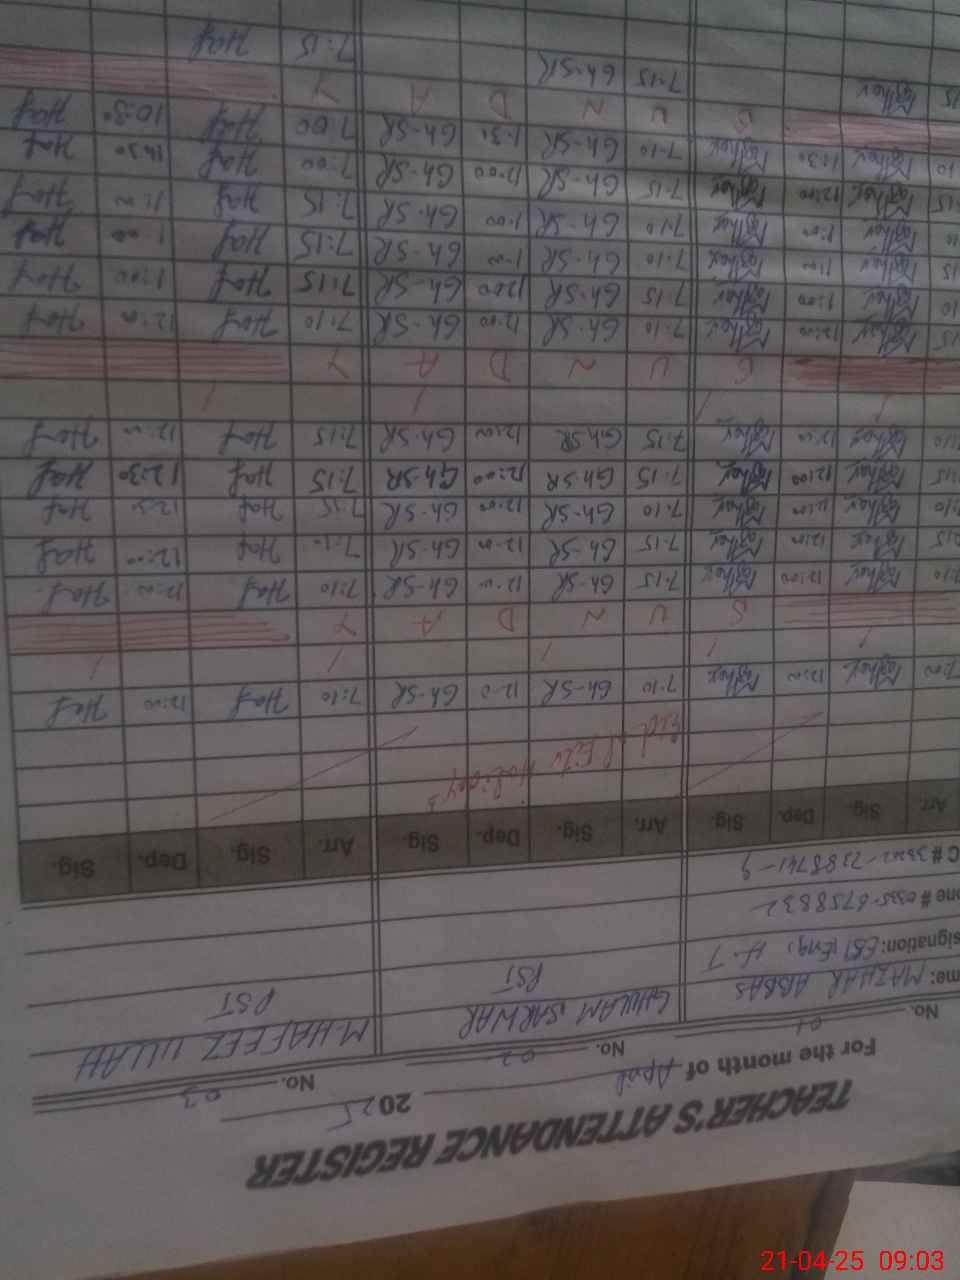 TEACHER'S ATTENDANCE REGISTER
For the month of April 2025
No. 01 No. 02 No. 03
me: MAZHAR ABBAS GHULAM SARWAR M. HAFEEZ ULLAH
signation: ESI (Eng) H-T PST PST
one # 0335-6758832
C # 33202-7388741-9
Arr. Sig. Dep. Sig. Arr. Sig. Dep. Sig. Arr. Sig. Dep. Sig.
Eid ul Fitr Holidays
7:00 Mazhar 12:00 Mazhar 7:10 Gh-SR 12:0 Gh-SR 7:10 Haf 12:00 Haf
S U N D A Y
7:10 Mazhar 12:00 Mazhar 7:15 Gh-SR 12:00 Gh-SR 7:10 Haf 12:00 Haf
7:15 Mazhar 12:00 Mazhar 7:15 Gh-SR 12:00 Gh-SR 7:10 Haf 12:00 Haf
7:10 Mazhar 12:00 Mazhar 7:10 Gh-SR 12:00 Gh-SR 7:15 Haf 12:30 Haf
7:15 Mazhar 12:00 Mazhar 7:15 Gh-SR 12:00 Gh-SR 7:15 Haf 12:30 Haf
7:10 Mazhar 12:00 Mazhar 7:15 Gh-SR 12:00 Gh-SR 7:15 Haf 12:00 Haf
S U N D A Y
15 Mazhar 12:00 Mazhar 7:10 Gh-SR 12:00 Gh-SR 7:10 Haf 12:00 Haf
10 Mazhar 1:00 Mazhar 7:15 Gh-SR 1:00 Gh-SR 7:15 Haf 1:00 Haf
15 Mazhar 1:00 Mazhar 7:10 Gh-SR 1:00 Gh-SR 7:15 Haf 1:00 Haf
10 Mazhar 1:00 Mazhar 7:10 Gh-SR 1:00 Gh-SR 7:15 Haf 1:00 Haf
7:15 Mazhar 12:00 Mazhar 7:15 Gh-SR 12:00 Gh-SR 7:00 Haf Haf
10 Mazhar Mazhar 7:10 Gh-SR 1:30 Gh-SR 7:00 Haf 10:30 Haf
S U N D A Y
15 Mazhar 7:15 Gh-SR 7:15 Haf
21-04-25 09:03